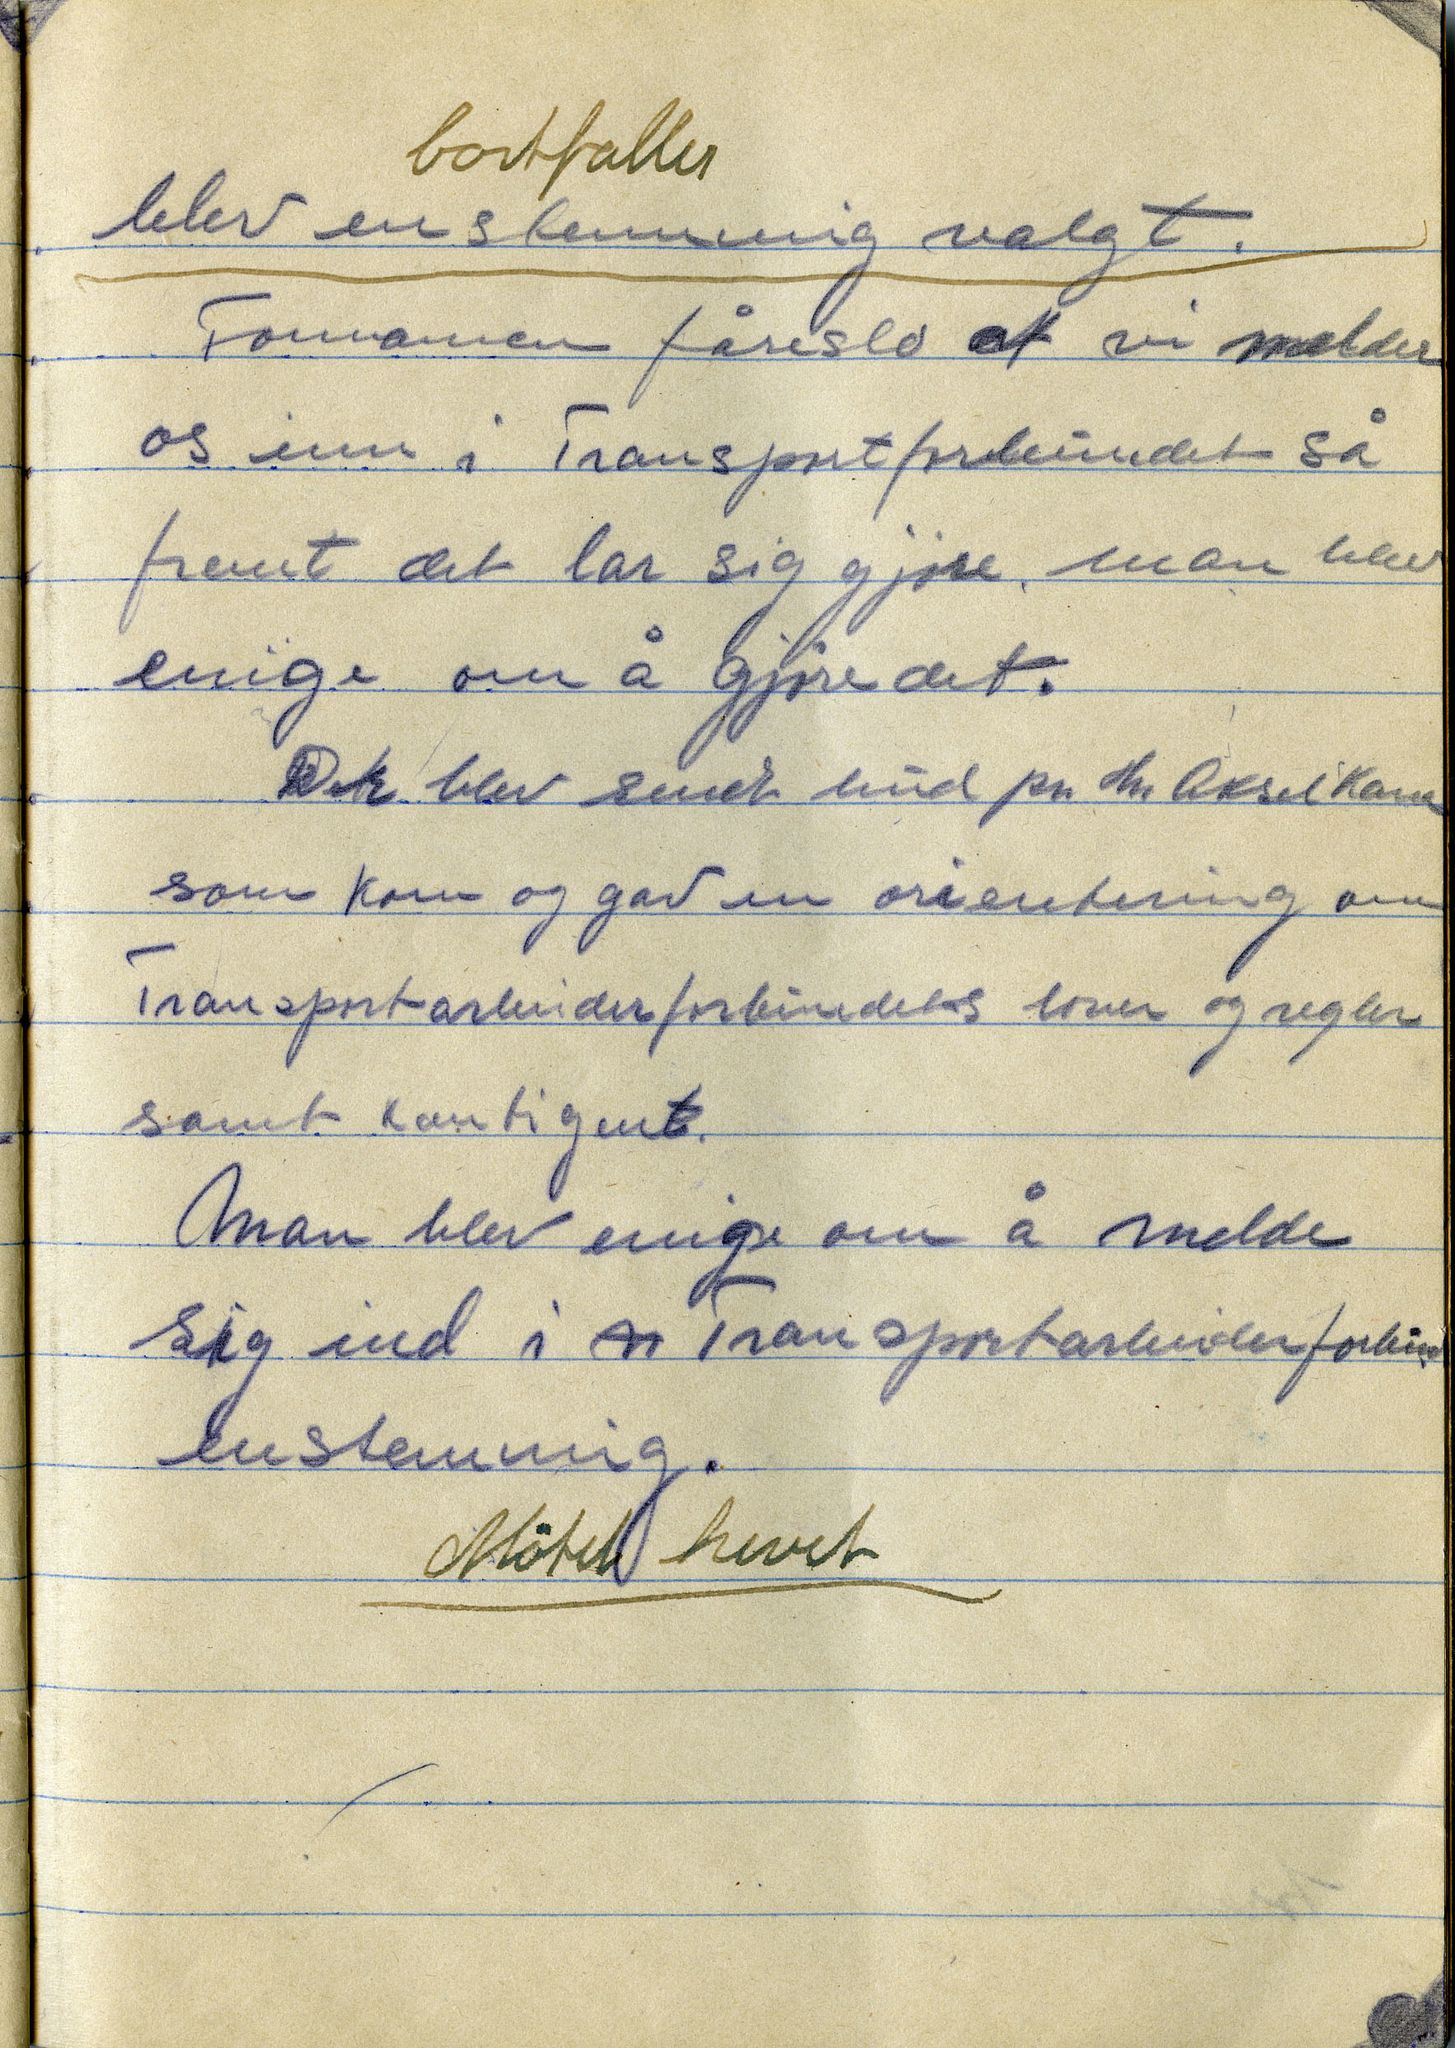 bortfaller
blev enstemmig valgt.
Formannen fåreslo at vi melder
os inn i Transportforbundet så
fremt det lar sig gjøre, man blev
enige om å gjøre det.
Det blev sendt bud på Hr. Aksel
som kom og gav en orientering om
Transportarbeiderforbundets lover og regler
samt kontigent.
Man blev enige om å melde
sig ind i Transportarbeiderforbun
enstemmig.
Mötet hevet